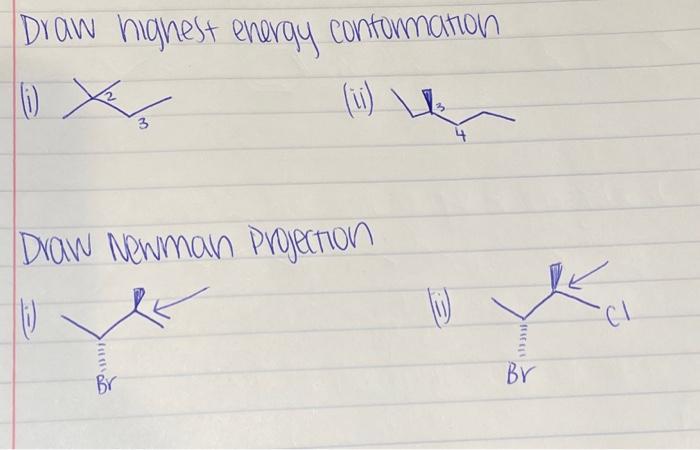 Draw highest energy conformation
(i) 2 3 (ii) 3 4
Draw Newman Projection
(i) Br (ii) Cl Br